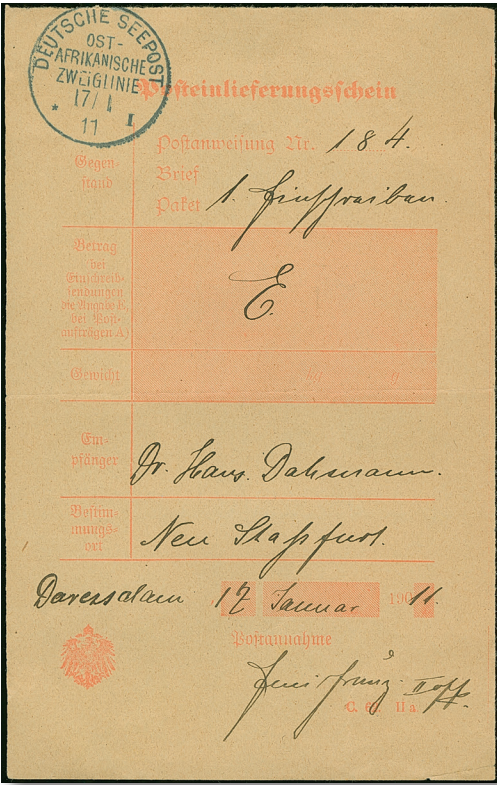 DEUTSCHE SEEPOST
OST-
AFRIKANISCHE
ZWEIGLINIE
17/ 1
* 11 I
Posteinlieferungsschein
Gegen-
stand
Postanweisung Nr. 184.
Brief
Paket 1. Einschreiben.
Betrag
bei
Einschreib-
sendungen
die Angabe E,
bei Post-
aufträgen A)
E.
Gewicht
kg g
Em-
pfänger
Dr. Hans Dahsmann.
Bestim-
mungs-
ort
Neu Staßfurt.
Daressalam, 17 Januar 1911.
Postannahme
C. 62. IIa